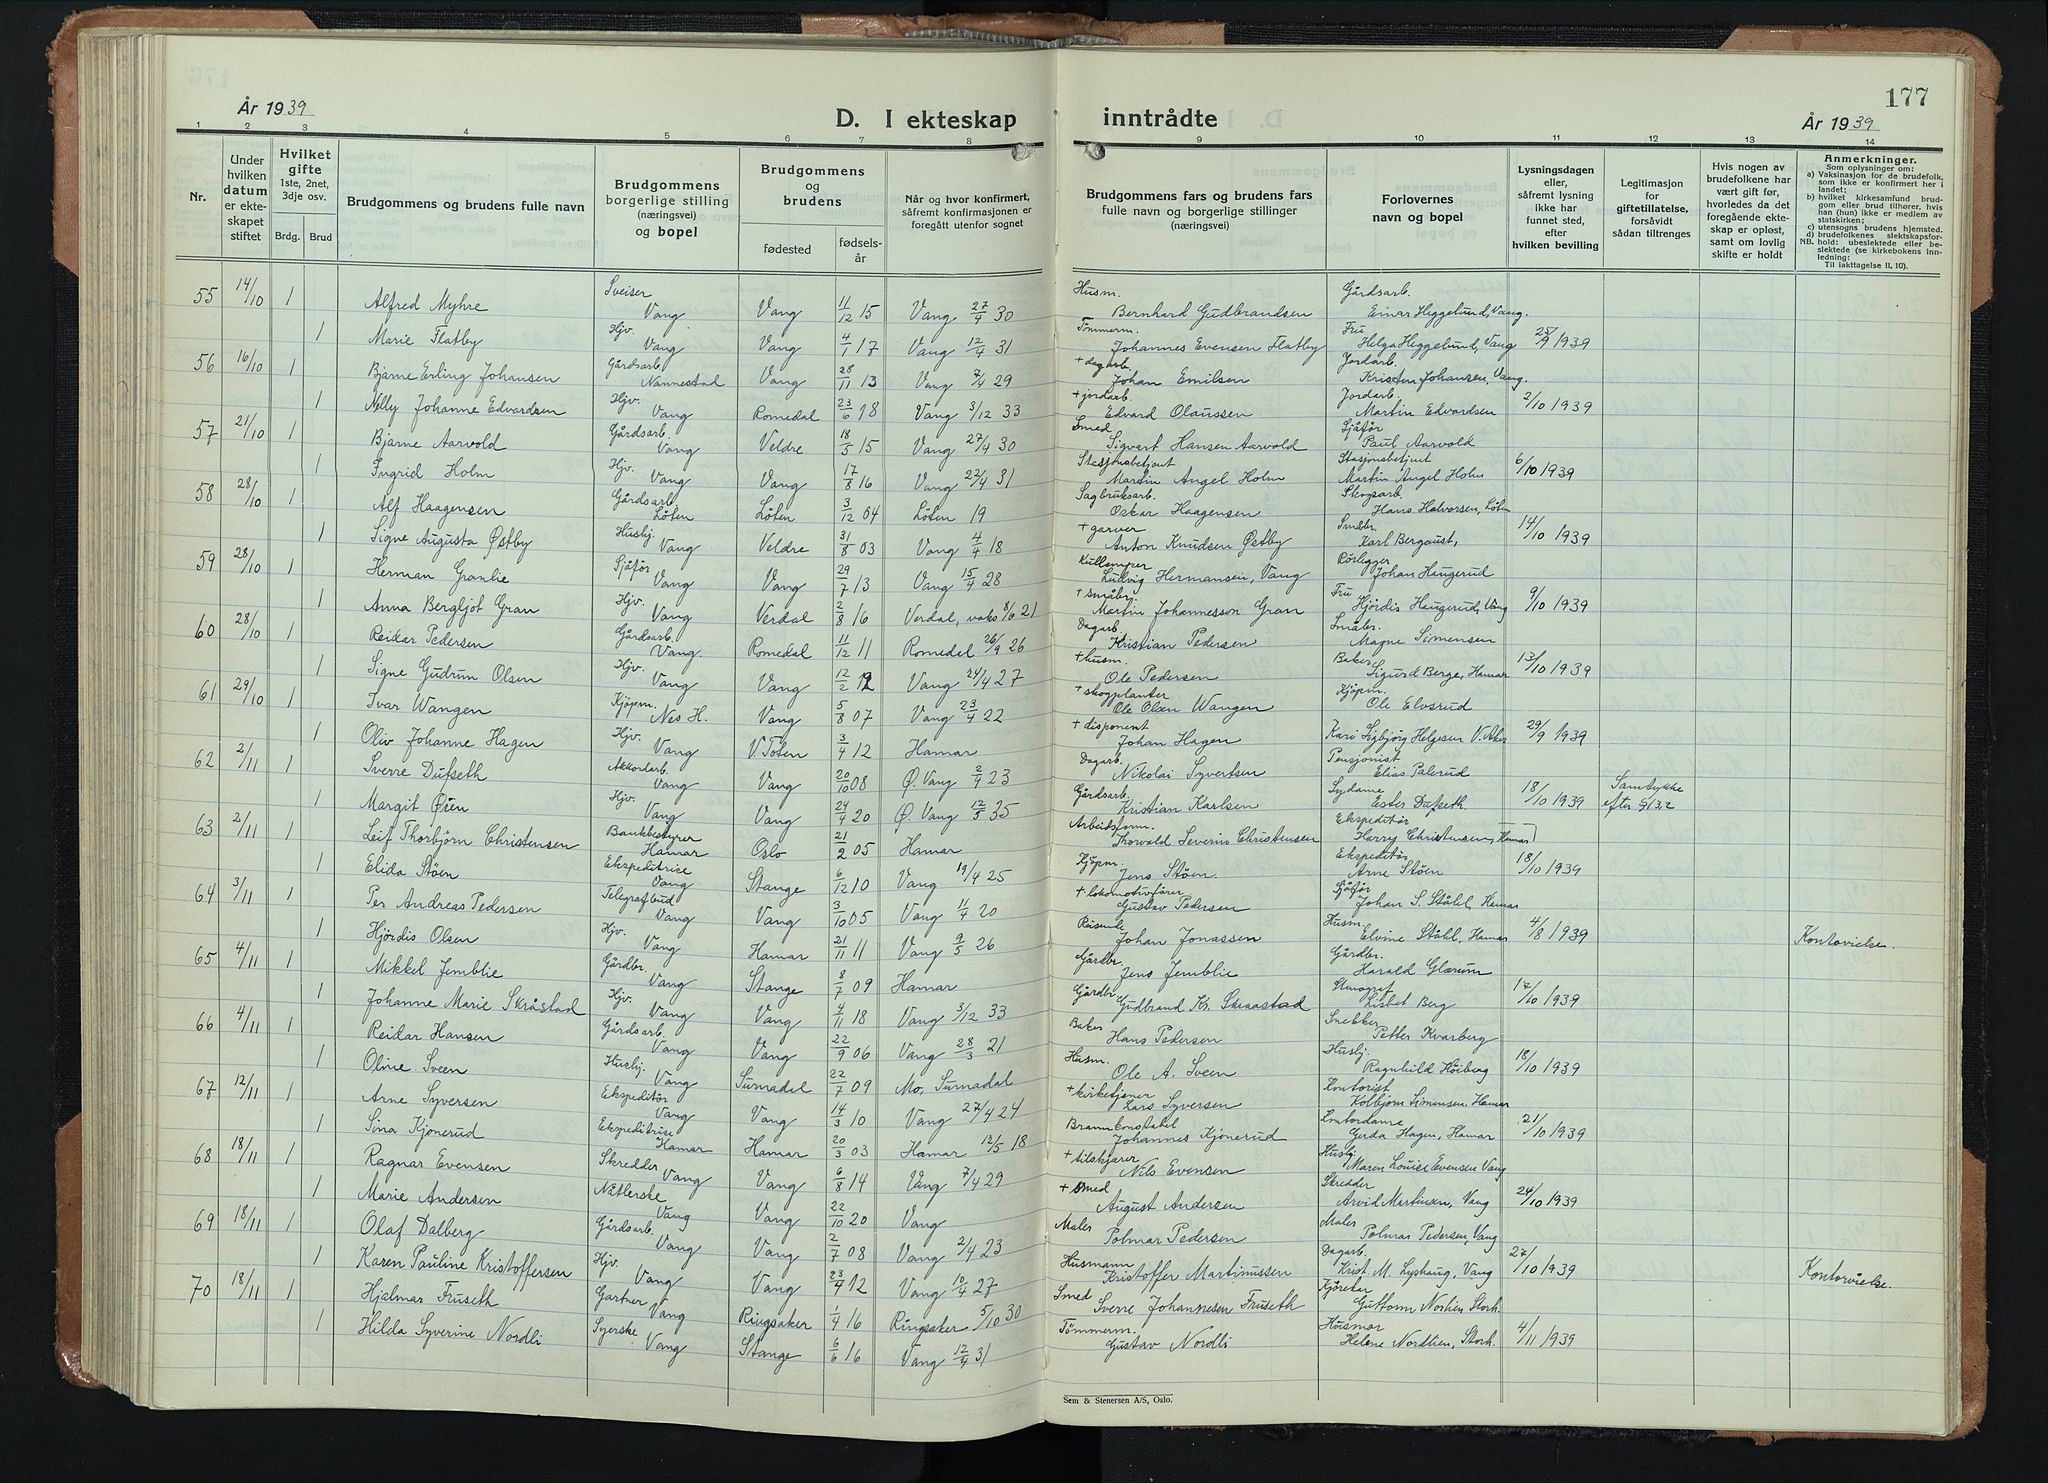 177
År 1939
D. I ekteskap inntrådte
År 1939
1 2 3 4 5 6 7 8 9 10 11 12 13 14
Nr.
Under hvilken datum er ekteskapet stiftet
Hvilket gifte 1ste, 2net, 3dje osv.
Brdg. Brud
Brudgommens og brudens fulle navn
Brudgommens borgerlige stilling (næringsvei) og bopel
Brudgommens og brudens
fødested fødselsår
Når og hvor konfirmert, såfremt konfirmasjonen er foregått utenfor sognet
Brudgommens fars og brudens fars fulle navn og borgerlige stillinger (næringsvei)
Forlovernes navn og bopel
Lysningsdagen eller, såfremt lysning ikke har funnet sted, efter hvilken bevilling
Legitimasjon for giftetillatelse, forsåvidt sådan tiltrenges
Hvis nogen av brudefolkene har vært gift før, hvorledes da det foregående ekteskap er opløst, samt om lovlig skifte er holdt
Anmerkninger.
Som oplysninger om:
a) Vaksinasjon for de brudefolk, som ikke er konfirmert her i landet;
b) hvilket kirkesamfund brudgom eller brud tilhører, hvis han (hun) ikke er medlem av statskirken;
c) utensogns brudens hjemsted.
d) brudefolkenes slektskapsforhold: ubeslektede eller beslektede (se kirkebokens innledning:
NB. Til iakttagelse II, 10).
55 14/10 1 Alfred Myhre Sveiser Vang Vang 11/12 15 Vang 27/4 30 Husm. Bernhard Gudbrandsen Gårdsarb. Einar Heggelund, Vang.
1 Marie Flatby Hjv. Vang Vang 4/1 17 Vang 12/4 31 Tømmerm. Johannes Evensen Flatby Fru Helga Heggelund, Vang 25/9 1939
56 16/10 1 Bjarne Erling Johansen Gårdsarb. Nannestad Vang 28/11 13 Vang 7/4 29 + dagarb. Johan Emilsen Jordarb. Kristen Johansen, Vang.
1 Nelly Johanne Edvardsen Hjv. Vang Romedal 23/6 18 Vang 3/12 33 + jordarb. Edvard Olaussen Jordarb. Martin Edvardsen 2/10 1939
57 21/10 1 Bjarne Aarvold Gårdsarb. Vang Veldre 18/5 15 Vang 27/4 30 Smed Sigvart Hansen Aarvold Sjåfør Paul Aarvold
1 Ingrid Holm Hjv. Vang Vang 17/8 16 Vang 22/4 31 Stasjonsbetjent Martin Angel Holm Stasjonsbetjent Martin Angel Holm 6/10 1939
58 28/10 1 Alf Haagensen Gårdsarb. Løten Løten 3/12 04 Løten 19 Sagbruksarb. Oskar Haagensen Skogsarb. Hans Halvorsen, Løten
1 Signe Augusta Østby Hushj. Vang Veldre 31/8 03 Vang 4/4 18 + garver Anton Knudsen Østby Småbr. Karl Bergaust, 14/10 1939
59 28/10 1 Herman Granlie Sjåfør Vang Vang 29/7 13 Vang 15/4 28 Kullemper Ludvig Hermansen, Vang Rørlegger Johan Haugerud
1 Anna Bergljot Gran Hjv. Vang Verdal 2/8 16 Verdal, vaks 8/6 21 + småbr. Martin Johannesson Gran Fru Hjørdis Haugerud, Vang 9/10 1939
60 28/10 1 Reidar Pedersen Gårdsarb. Vang. Romedal 11/12 11 Romedal 26/9 26 Dagarb. Kristian Pedersen Småbr. Magne Simensen
1 Signe Gudrun Olsen Hjv. Vang Vang 12/2 12 Vang 24/4 27 + husm. Ole Pedersen Baker Sigurd Berge, Hamar 13/10 1939
61 29/10 1 Ivar Wangen Kjøpm. Nes H. Vang 5/8 07 Vang 23/4 22 + skogplanter Ole Olsen Wangen Kjøpm. Ole Elvsrud
1 Oliv Johanne Hagen Hjv. Vang V. Toten 3/4 12 Hamar + disponent Johan Hagen Kari Sigbjørg Helgesen V. Aker 29/9 1939
62 2/11 1 Sverre Dufseth Akkordarb. Vang Vang 20/10 08 Ø. Vang 2/4 23 Dagarb. Nikolai Syvertsen Pensjonist Elias Palerud
1 Margit Øien Hjv. Vang Vang 24/4 20 Ø. Vang 12/5 35 Gårdsarb. Kristian Karlsen Sydame Ester Dufseth. 18/10 1939 Samtykke
63 2/11 1 Leif Thorbjørn Christensen Bankbestyrer Hamar Oslo 21/2 05 Hamar Arbeidsform. Thorvald Severin Christensen Ekspeditør Harry Christensen, Hamar
1 Elida Støen Ekspeditrise Vang Stange 6/12 10 Vang 19/4 25 Kjøpm. Jens Støen. Ekspeditør Arne Støen 18/10 1939
64 3/11 1 Per Andreas Pedersen Telegrafbud Vang Vang 3/10 05 Vang 11/4 20 + lokomotivfører Gustav Pedersen Sjåfør Johan S. Ståhl, Hamar
1 Hjørdis Olsen Hjv. Vang Hamar 21/11 11 Vang 9/5 26 Reisende Johan Jonassen Husm. Elvine Ståhl, Hamar 4/8 1939 Kontorvielse.
65 4/11 1 Mikkel Jemblie Gårdbr. Vang Stange 8/7 09 Hamar Gårdbr. Jens Jemblie Gårdbr. Harald Glærum
1 Johanne Marie Skråstad Hjv. Vang Vang 4/11 18 Vang 3/12 33 Gårdbr Gudbrand Kr. Skraastad Stenograf Lisbet Berg 17/10 1939
66 4/11 1 Reidar Hansen Gårdsarb. Vang Vang 22/9 06 Vang 28/3 21 Baker Hans Pedersen Snekker Petter Kvarberg
1 Oline Sveen Hushj. Vang Surnadal 22/7 09 Mo, Surnadal Husm. Ole A. Sveen Hushj. Ragnhild Høiberg 18/10 1939
67 12/11 1 Arne Syversen Ekspeditør Vang Vang 14/3 10 Vang 27/4 24 + kirketjener Lars Syversen Kontorist Kolbjørn Simensen. Hamar
1 Sina Kjonerud Ekspeditrise Hamar Hamar 20/3 03 Hamar 12/5 18 Brannkonstabel Johannes Kjonerud Kontordame Gerda Hagen, Hamar 21/10 1939
68 18/11 1 Ragnar Evensen Skredder Vang Vang 6/8 14 Vang 7/4 29 + tilskjærer Nils Evensen Hushj. Maren Louise Evensen Vang
1 Marie Andersen Nåtlerske Vang Vang 22/10 20 Vang + smed August Andersen Skredder Arvid Martinsen, Vang 24/10 1939
69 18/11 1 Olaf Dalberg Gårdsarb. Vang Vang 2/7 08 Vang 2/4 23 Maler Polmar Pedersen Maler Polmar Pedersen, Vang
1 Karen Pauline Kristoffersen Hjv. Vang Vang 23/4 12 Vang 10/4 27 Husmann Kristoffer Martinussen Dagarb. Krist. M. Lyshaug, Vang 27/10 1939 Kontorvielse.
70 18/11 1 Hjalmar Fruseth Gartner Vang Ringsaker 1/4 16 Ringsaker 5/10 30 Smed Sverre Johannesen Fruseth Kjørekar Guttorm Nordlien Storh.
1 Hilda Syverine Nordli Syerske Vang Stange 6/6 16 Vang 12/4 31 Tømmerm. Gustav Nordli Husmor Helene Nordlien, Storh. 4/11 1939
Sem & Stenersen A/S, Oslo.